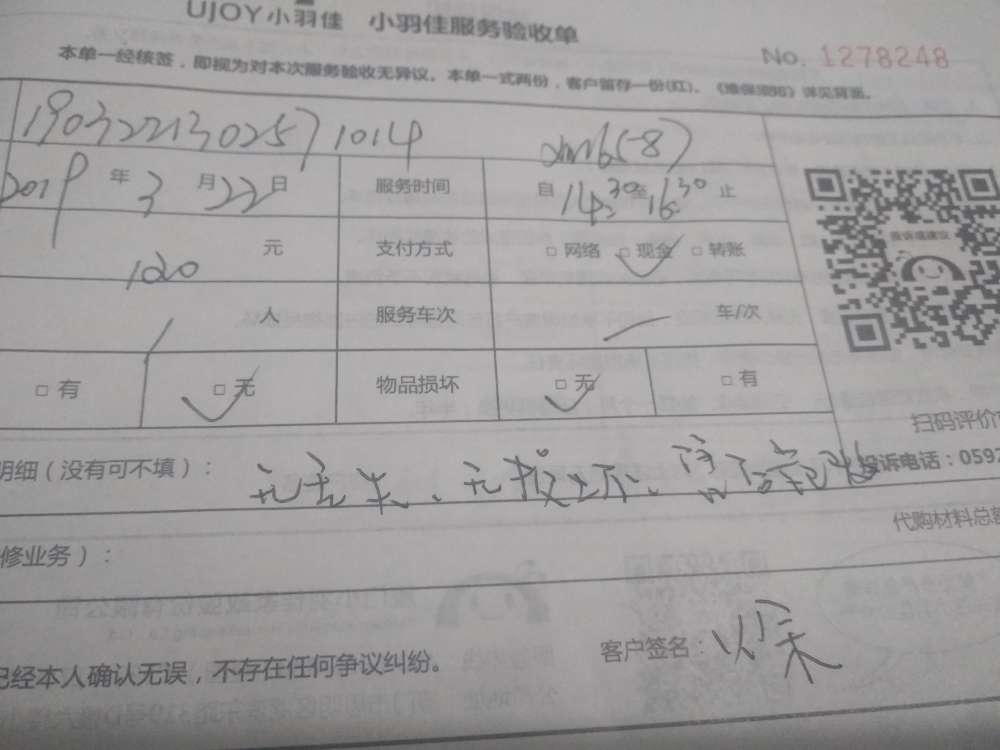 UJOY小羽佳 小羽佳服务验收单
No. 1278248
本单一经核签，即视为对本次服务验收无异议。本单一式两份，客户留存一份(红)。《维保须知》详见背面。
1903221302571014
2019年3月22日 服务时间 自14:30至16:30止
120元 支付方式 □网络 □现金 □转账
人 服务车次 车/次
□有 □无 物品损坏 □无 □有
投诉或建议
扫码评价
明细（没有可不填）： 无丢失、无损坏、
投诉电话：0592
代购材料总额
修业务）：
客户签名：
已经本人确认无误，不存在任何争议纠纷。